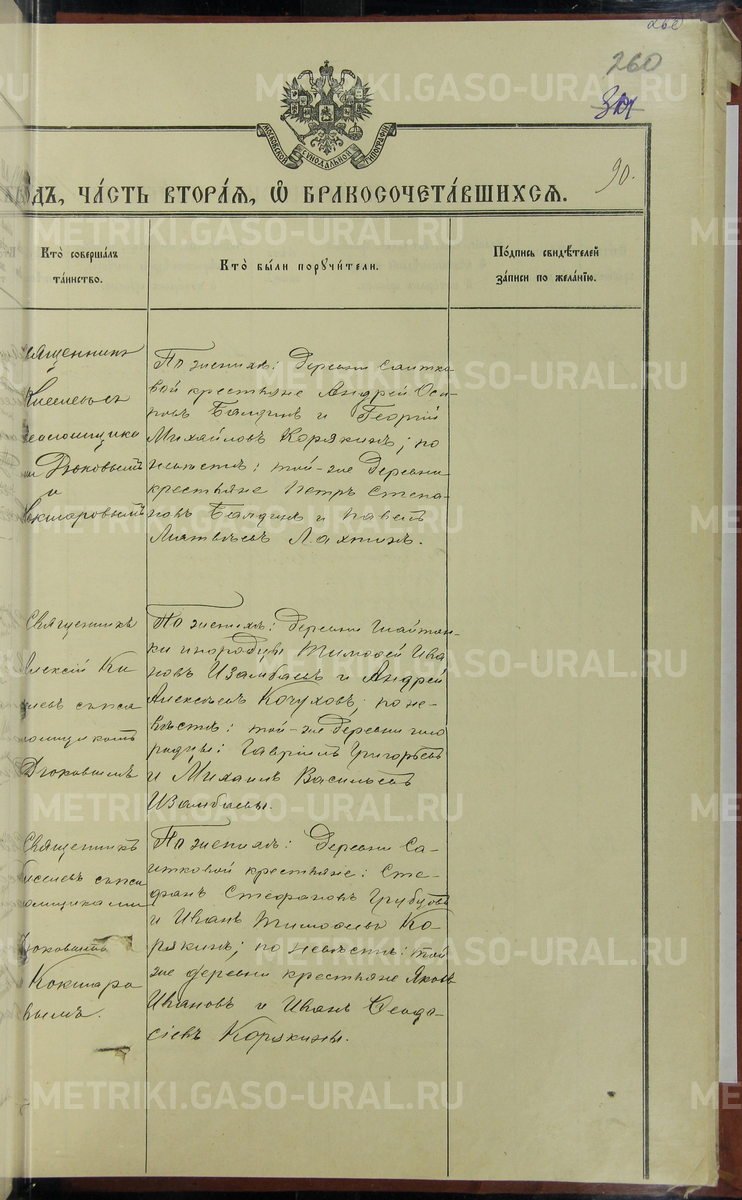 260
260
301
МОСКОВСКОЙ СѴНОДАЛЬНОЙ ТИПОГРАФІИ
90.
ЧА́СТЬ ВТОРА́Я, Ѡ БРАКОСОЧЕТА́ВШИХСЯ.
Кто̀ соверша́лъ
та́инство.
Кто̀ бы́ли порꙋчи́тели.
По́дпись свидѣ́телей
за́писи по жела́нїю.
По женихѣ: Деревни Саитко
вой крестьяне Андрей Оси
повъ Балдинъ и Георгій
Михайловъ Корякинъ; по
невѣстѣ: той-же Деревни
крестьяне Петръ Степа-
новъ Балдинъ и Павелъ
Матвѣевъ Лахтинъ.
Священникъ
Алексій Ки
селевъ съ пса
ломщикомъ
Дюковымъ
По женихѣ: Деревни Шайтан-
ки инородцы Тимофей Ива
новъ Изамбаевъ и Андрей
Алексѣевъ Кочуховъ; по не-
вѣстѣ: той-же деревни ино
родцы: Гавріилъ Григорьевъ
и Михаилъ Васильевъ
Изамбаевы.
Священникъ
Киселевъ съ пса
ломщиками
Дюковымъ
Кокшаро
вымъ.
По женихѣ: Деревни Са-
итковой крестьяне: Сте-
фанъ Стефановъ
и Иванъ Тимофеевъ Ко-
рякинъ; по невѣстѣ: той
же деревни крестьяне Яковъ
Ивановъ и Иванъ Ѳеодо-
сіевъ Корякины.
METRIKI.GASO-URAL.RU